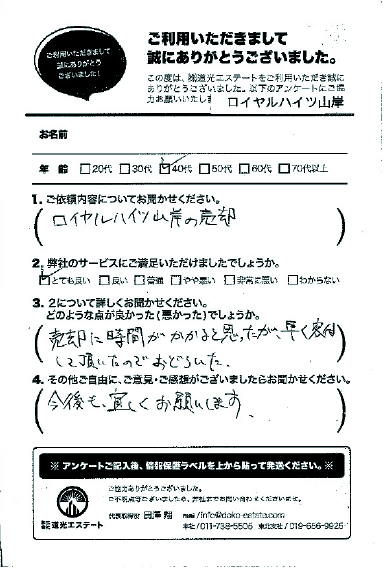 ご利用いただきまして
誠にありがとう
ございました!
ご利用いただきまして
誠にありがとうございました。
この度は、㈱道光エステートをご利用いただき誠に
ありがとうございました。以下のアンケートにご協
力お願いいたしま
ロイヤルハイツ山岸
お名前
年 齢 □20代 □30代 ☑40代 □50代 □60代 □70代以上
1. ご依頼内容についてお聞かせください。
(ロイヤルハイツ山岸の売却)
2. 弊社のサービスにご満足いただけましたでしょうか。
☑とても良い □良い □普通 □やや悪い □非常に悪い □わからない
3. 2について詳しくお聞かせください。
どのような点が良かった(悪かった)でしょうか。
(売却に時間がかかると思ったが、早く
して頂いたのでおどろいた。)
4. その他ご自由に、ご意見・ご感想がございましたらお聞かせください。
(今後も、宜しくお願いします。)
※ アンケートご記入後、情報保護ラベルを上から貼って発送ください。※
ご協力ありがとうございました。
ご不明点等ございましたら、弊社までお問い合わせくださいませ。
株式会社道光エステート
代表取締役
mail / info@doko-estate.com
本社/011-738-5505 東北支店/019-656-9925